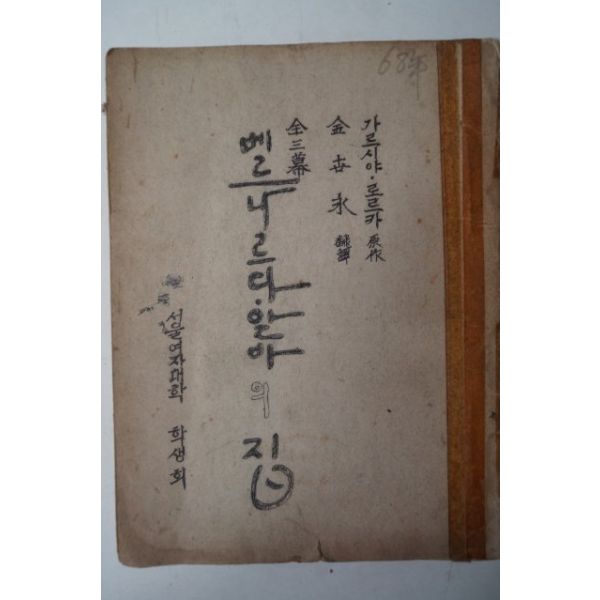 68年
가르시야·로르카 原作
金世永 飜譯
全三幕
베르나르다·알바의 집
서울여자대학 학생회